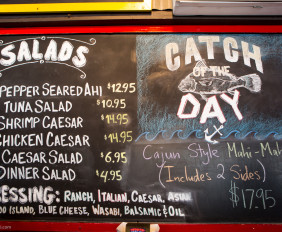 SALADS
PEPPER SEARED AHI $12.95
TUNA SALAD $10.95
SHRIMP CAESAR $14.95
CHICKEN CAESAR $14.95
CAESAR SALAD $6.95
DINNER SALAD $4.95
ESSING: RANCH, ITALIAN, CAESAR, ASIAN
ISLAND, BLUE CHEESE, WASABI, BALSAMIC & OIL
CATCH
OF THE
DAY
Cajun Style Mahi-Mah
(Includes 2 Sides)
$17.95